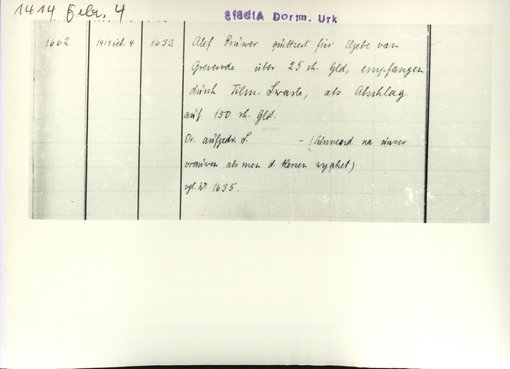 1414 Febr. 4
StadtA Dortm. Urk
1662 1414 feb. 4 1633 Alef Brüwer quittiert für Ilsebe van
Grevende über 25 rh. Gld, empfangen
durch Tilm. Swarte, als Abschlag
auf 150 rh. Gld.
Or. aufgedr. S. - (sünnavend na unser
vrauwen als men d. kersen wyghet)
vgl. No 1635.